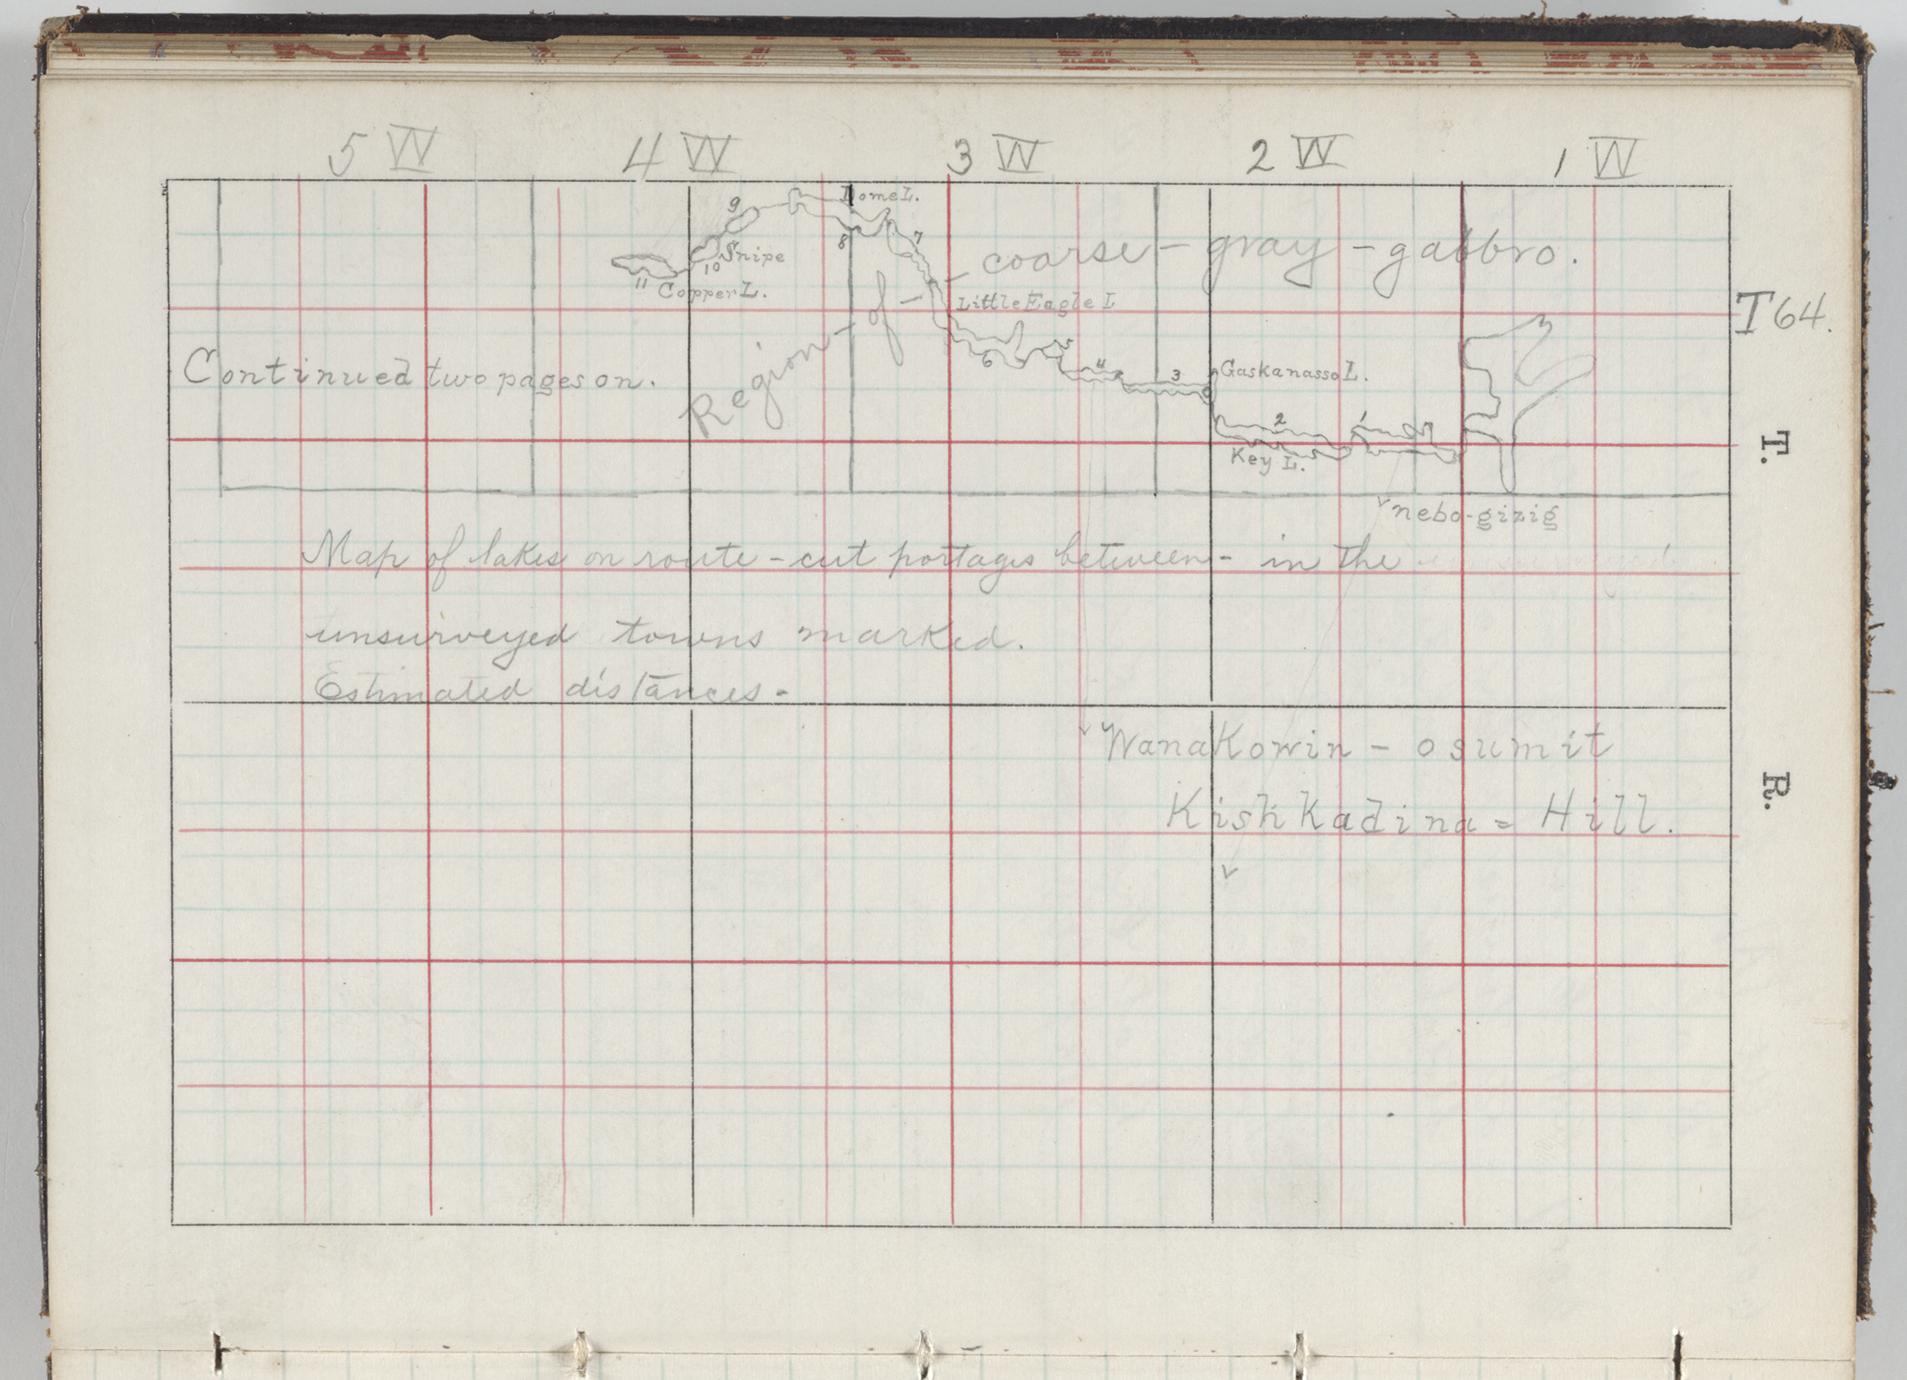 5 W 4 W 3 W 2 W 1 W
Dome L.
9
8
7
Snipe
10
11
Copper L.
Region - of - coarse - gray - gabbro.
Little Eagle L
T 64.
5
6
4
3
Gaskanasso L.
Continued two pages on.
2
1
Key L.
T.
nebo-gizig
Map of lakes on route - cut portages between - in the
unsurveyed towns marked.
Estimated distances -
WanaKowin - o sumit
R.
KishKadina = Hill.